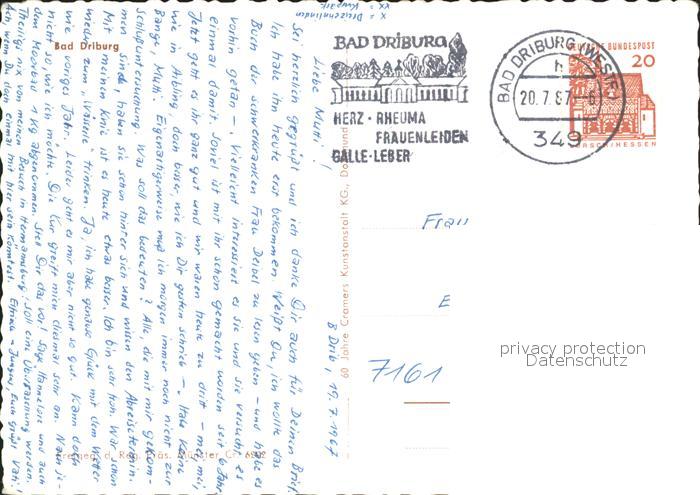 x = Dreizehnlinden
xx = Kurpark
Bad Driburg
BAD DRIBURG
HERZ · RHEUMA
FRAUENLEIDEN
GALLE · LEBER
BAD DRIBURG (WESTF)
h
20.7.67-6
349
DEUTSCHE BUNDESPOST
20
LORSCH/HESSEN
B Drib, 19.7.1967
Liebe Mutti!
Sei herzlich gegrüßt und ich danke Dir auch für Deinen Brief.
Ich habe ihn heute erst bekommen. Weißt Du, ich wollte das
Buch die schwerkranken Frau Deibel zu lesen geben – und habe es
vorhin getan –. Vielleicht interessiert es sie und sie versucht es
einmal damit. Soviel ist mit ihr schon gemacht worden seit 6 Jahr.
Jetzt geht es ihr ganz gut und wir waren heute zu dritt –
wie in Aibling, doch besser, wie ich Dir gestern schrieb –. Hab keine
Bange, Mutti. Eigenartigerweise muß ich morgen immer noch nicht zur
Schlußuntersuchung. Was soll das bedeuten? Alle, die mit mir gekom-
men sind, haben sie schon hinter sich und wissen den Abreisetermin.
Mit meinem Knie ist es heute etwas besser. Ich bin sehr froh. War schon
wieder zum trinken. Ja, ich habe genauso Glück mit dem Wetter
wie voriges Jahr. Leider geht es mir aber nicht so gut. Kann doch
nicht so, wie ich möchte. Die Kur greift mich diesmal sehr an. Nach je-
dem Moorbad 1 kg abgenommen. Stell Dir das vor! Sage Hannelore und auch
nix von meinem Besuch in Hermannsburg, soll eine Überraschung werden.
Ach wenn Du doch einmal mit hier sein könntest.
60 Jahre Cramers Kunstanstalt KG., Dortmund
Frau
E
7161
privacy protection
Datenschutz